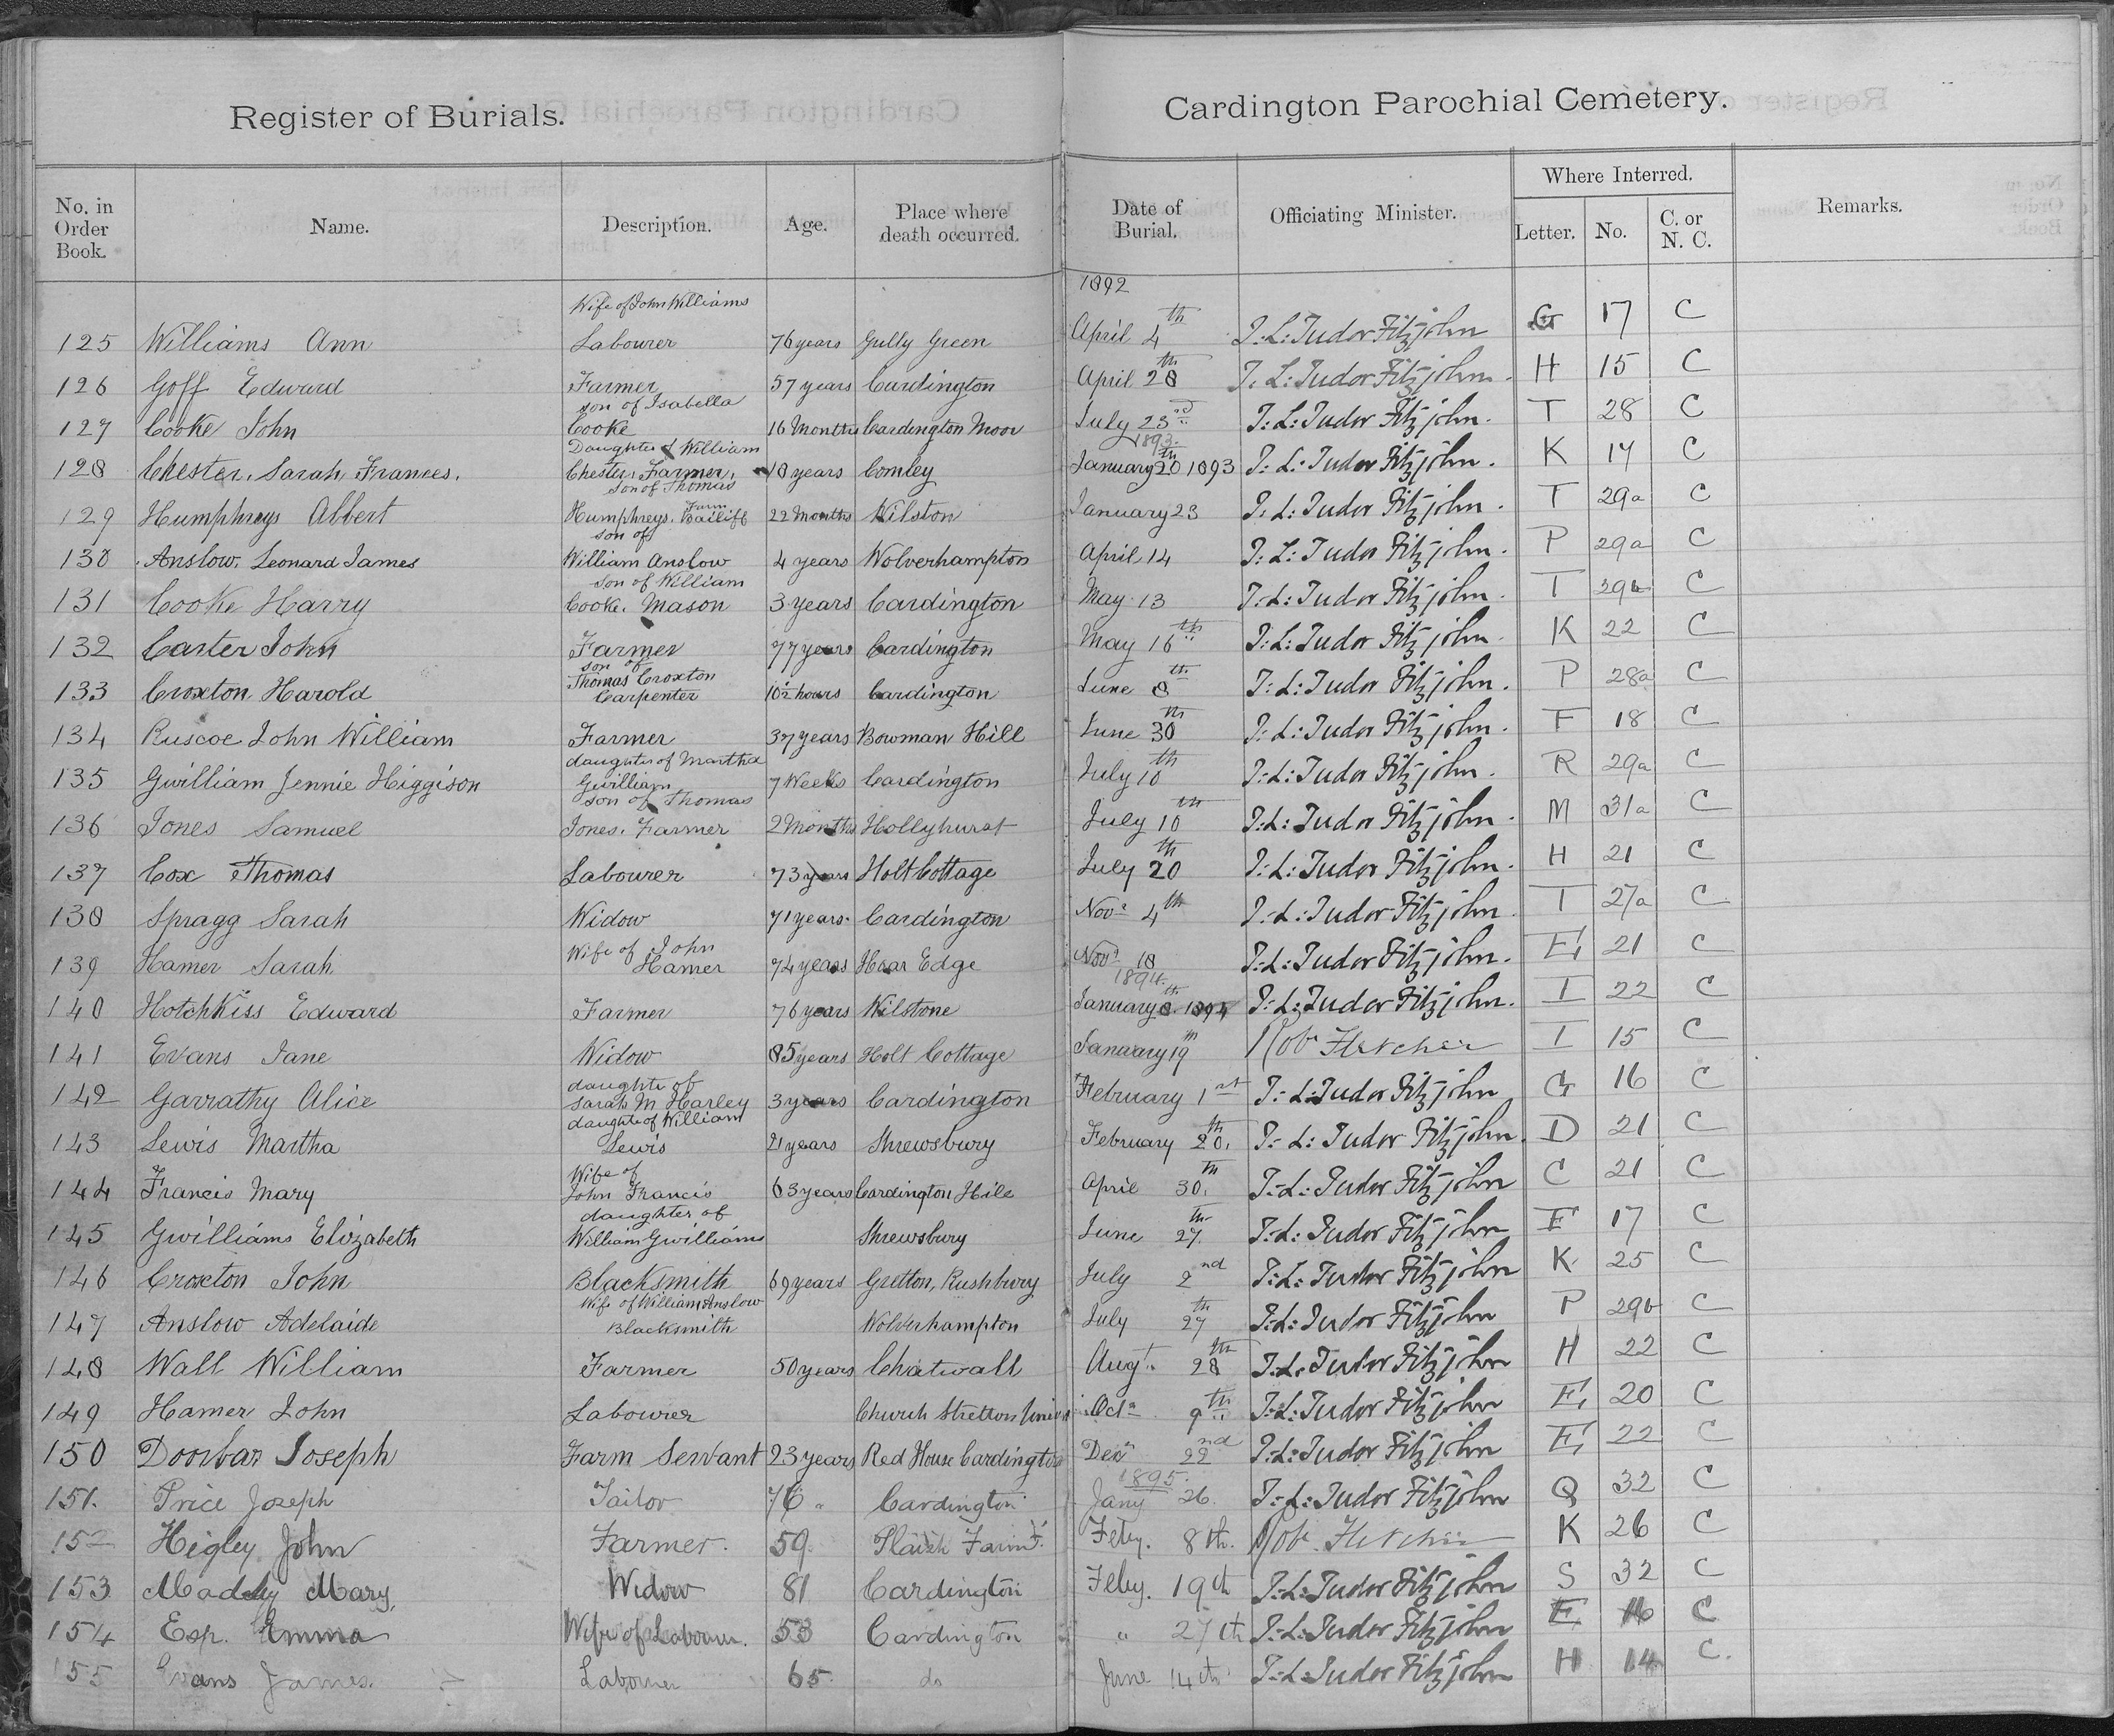 Register of Burials. Cardington Parochial Cemetery.
No. in Order Book. Name. Description. Age. Place where death occurred. Date of Burial. Officiating Minister. Where Interred. Letter. No. C. or N. C. Remarks.
1892
125 Williams Ann Wife of John Williams Labourer 76 years Gully Green April 4th T: L: Tudor Fitzjohn G 17 C
126 Goff Edward Farmer 57 years Cardington April 28th T: L: Tudor Fitzjohn. H 15 C
127 Cooke John son of Isabella Cooke 16 Months Cardington Moor July 23rd T: L: Tudor Fitzjohn. T 28 C
1893.
128 Chester, Sarah, Frances. Daughter of William Chester, Farmer, 18 years Comley January 20th 1893 T: L: Tudor Fitzjohn. K 17 C
129 Humphreys Albert son of Thomas Humphreys. Farm Bailiff 22 Months Wilston January 23 T: L: Tudor Fitzjohn. T 29a C
130 Anslow. Leonard James son of William Anslow 4 years Wolverhampton April 14 T: L: Tudor Fitzjohn. P 29a C
131 Cooke Harry son of William Cooke. Mason 3 years Cardington May 13 T: L: Tudor Fitzjohn. T 29b C
132 Carter John Farmer 77 years Cardington May 16th T: L: Tudor Fitzjohn. K 22 C
133 Croxton Harold son of Thomas Croxton Carpenter 10½ hours Cardington June 8th T: L: Tudor Fitzjohn. P 28a C
134 Ruscoe John William Farmer 37 years Bowman Hill June 30th T: L: Tudor Fitzjohn. F 18 C
135 Gwilliam Jennie Higgison daughter of Martha Gwilliam 7 Weeks Cardington July 10th T: L: Tudor Fitzjohn. R 29a C
136 Jones Samuel son of Thomas Jones. Farmer 2 Months Hollyhurst July 10th T: L: Tudor Fitzjohn. M 31a C
137 Cox Thomas Labourer 73 years Holt Cottage July 20th T: L: Tudor Fitzjohn. H 21 C
138 Spragg Sarah Widow 71 years. Cardington Novr 4th T: L: Tudor Fitzjohn. T 27a C
139 Hamer Sarah Wife of John Hamer 74 years Hoar Edge Novr 18 T: L: Tudor Fitzjohn. E 21 C
1894.
140 Hotchkiss Edward Farmer 76 years Wilstone January 8th 1894 T: L: Tudor Fitzjohn. I 22 C
141 Evans Jane Widow 85 years Holt Cottage January 19th Rob. Fletcher I 15 C
142 Garrathy Alice daughter of Sarah M Harley 3 years Cardington February 1st T: L: Tudor Fitzjohn G 16 C
143 Lewis Martha daughter of William Lewis 21 years Shrewsbury February 20th. T: L: Tudor Fitzjohn. D 21 C
144 Francis Mary Wife of John Francis 63 years Cardington Hill April 30th. T: L: Tudor Fitzjohn C 21 C
145 Gwilliams Elizabeth daughter of William Gwilliams Shrewsbury June 27th T: L: Tudor Fitzjohn F 17 C
146 Croxton John Blacksmith 69 years Gretton, Rushbury July 2nd T: L: Tudor Fitzjohn K 25 C
147 Anslow Adelaide Wife of William Anslow Blacksmith Wolverhampton July 27th T: L: Tudor Fitzjohn P 29b C
148 Wall William Farmer 50 years Chatwall Augt. 28th T: L: Tudor Fitzjohn H 22 C
149 Hamer John Labourer Church Stretton Union Octr 9th T: L: Tudor Fitzjohn E 20 C
150 Doorbar Joseph Farm Servant 23 years Red House Cardington Decr 22nd T: L: Tudor Fitzjohn E 22 C
1895.
151. Price Joseph Tailor 76 " Cardington Jany 26. T: L: Tudor Fitzjohn Q 32 C
152 Higley John Farmer. 59. Plaish Farm Feby. 8th. Rob. Fletcher K 26 C
153 Madely Mary, Widow 81 Cardington Feby. 19th T: L: Tudor Fitzjohn S 32 C
154 Esp. Emma Wife of Labourer. 53 Cardington " 27th T: L: Tudor Fitzjohn E 16 C
155 Evans James. Labourer 65. do June 14th T: L: Tudor Fitzjohn H 14 C.